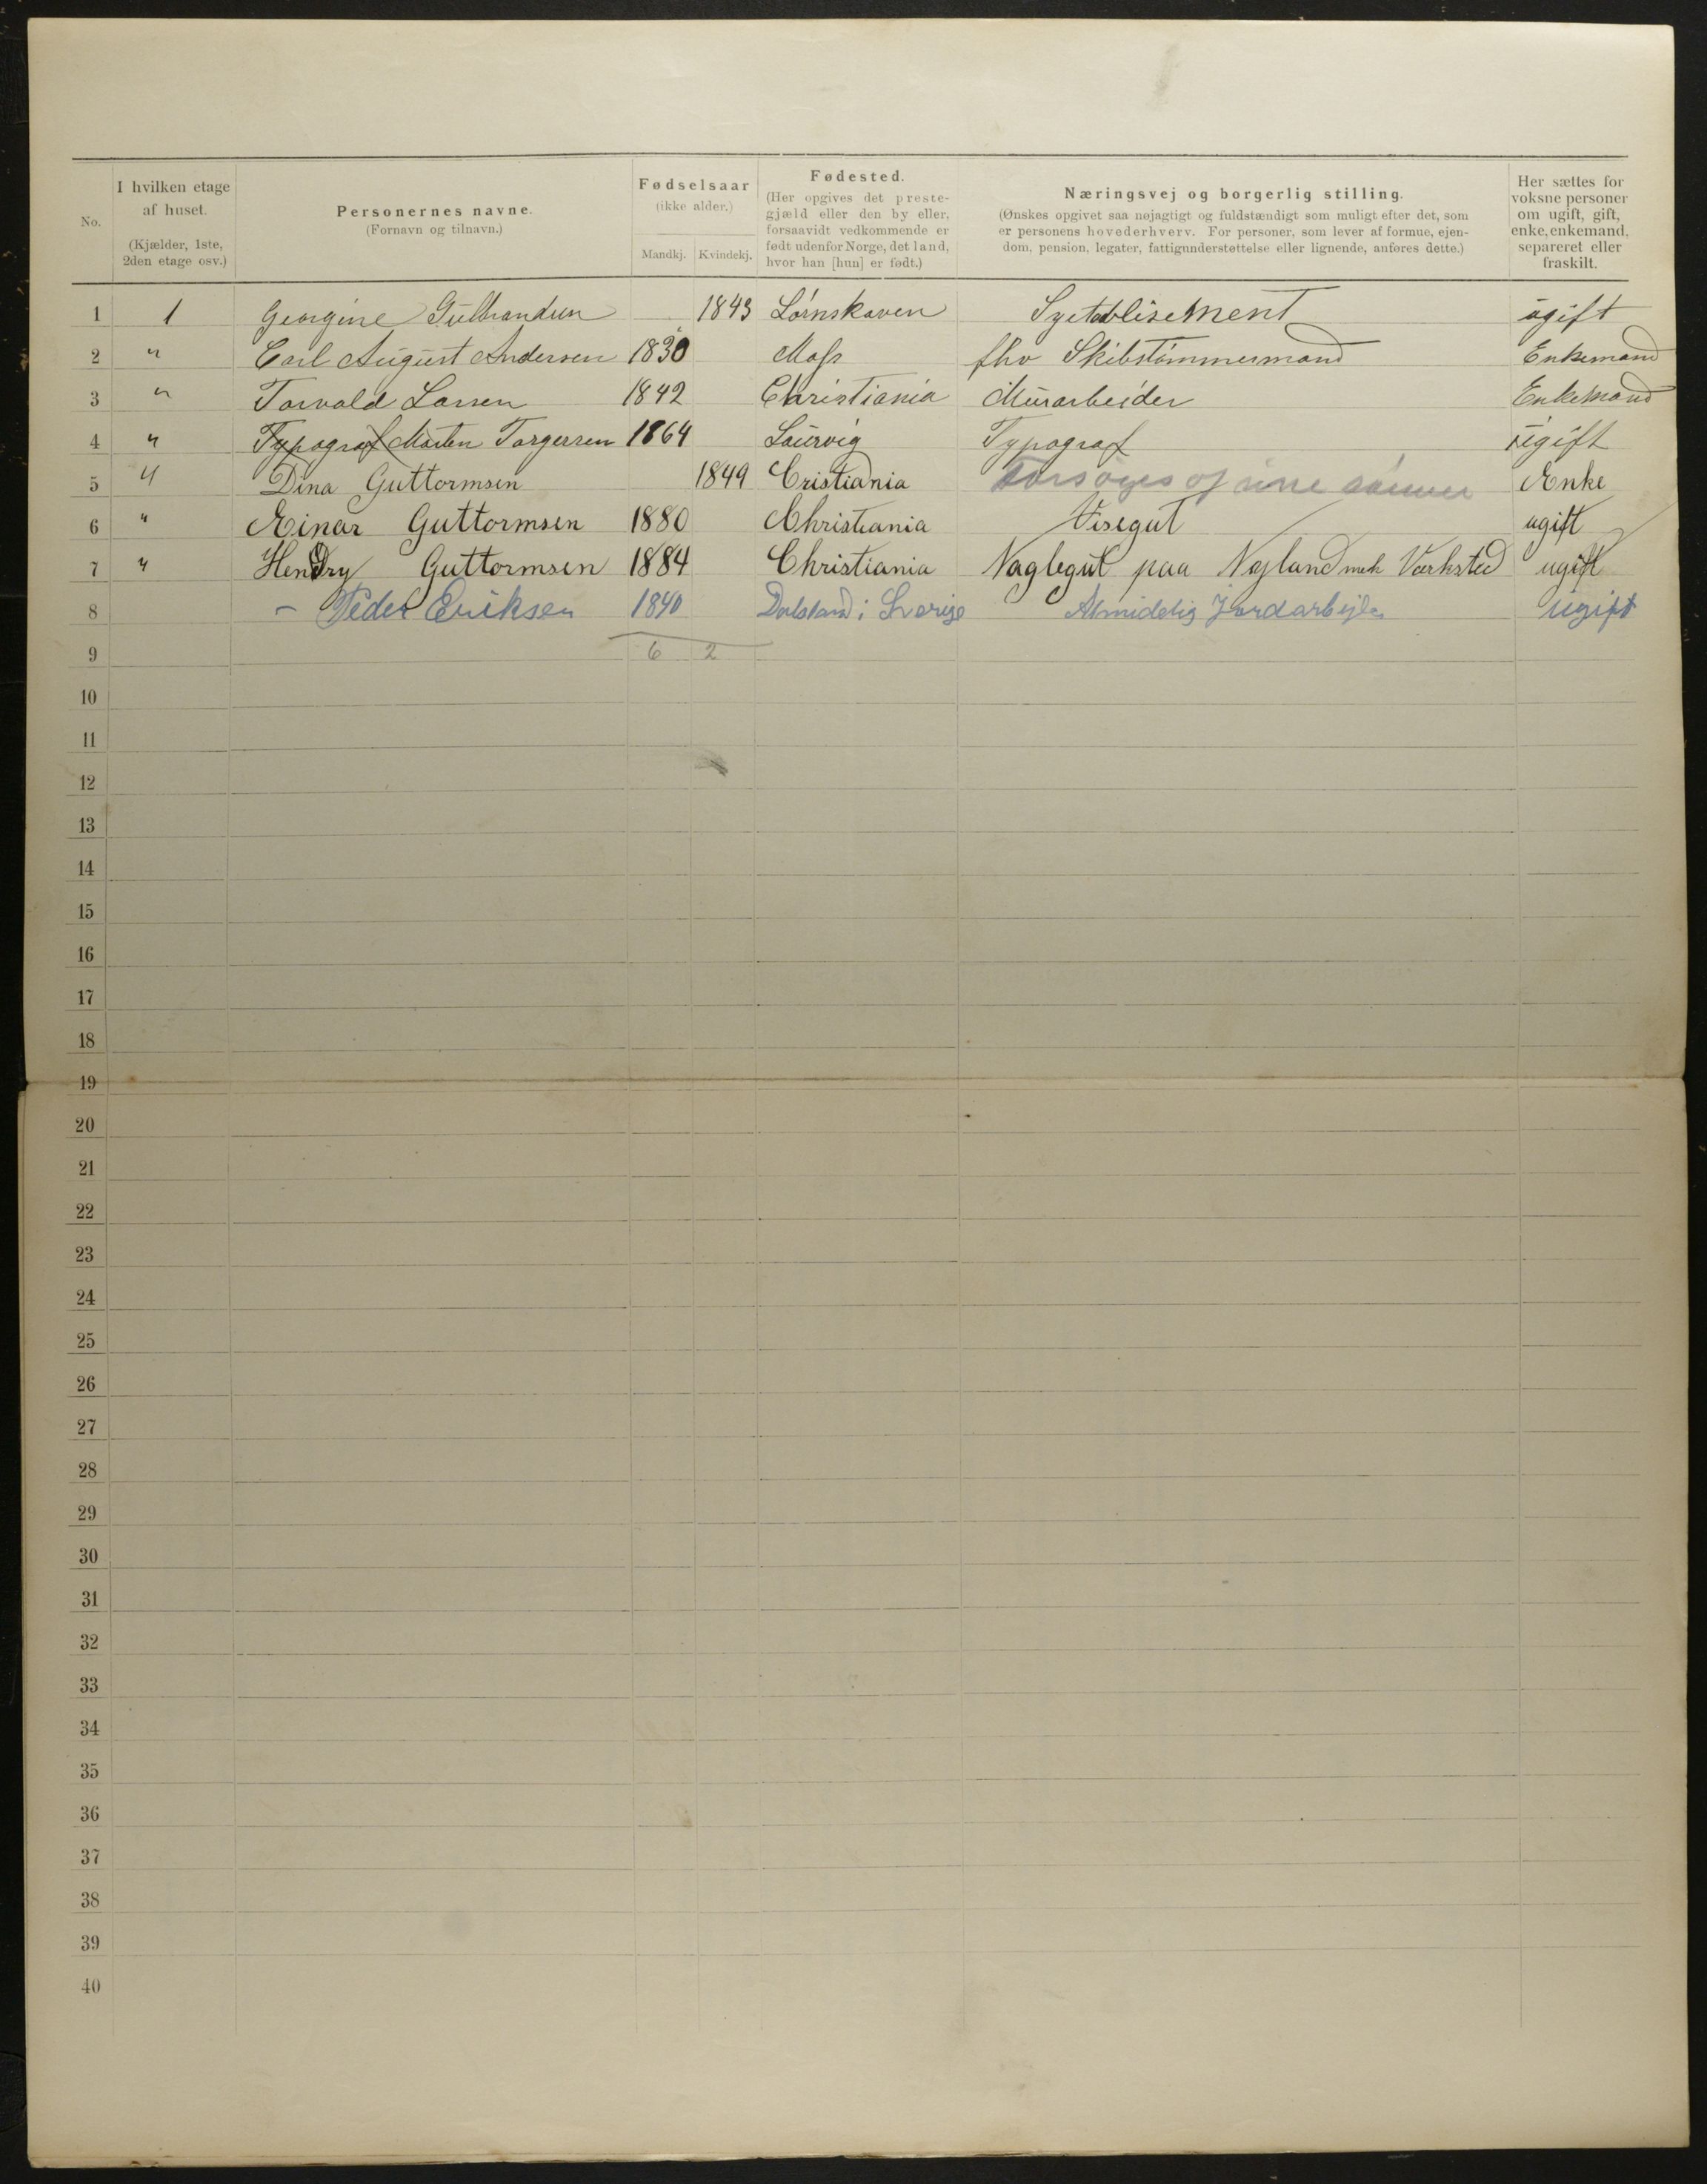 No.
I hvilken etage af huset. (Kjælder, 1ste, 2den etage osv.)
Personernes navne. (Fornavn og tilnavn.)
Fødselsaar (ikke alder.)
Mandkj. Kvindekj.
Fødested. (Her opgives det prestegjæld eller den by eller, forsaavidt vedkommende er født udenfor Norge, det land, hvor han [hun] er født.)
Næringsvej og borgerlig stilling. (Ønskes opgivet saa nøjagtigt og fuldstændigt som muligt efter det, som er personens hovederhverv. For personer, som lever af formue, ejendom, pension, legater, fattigunderstøttelse eller lignende, anføres dette.)
Her sættes for voksne personer om ugift, gift, enke, enkemand, separeret eller fraskilt.
1 1 Georgine Gulbrandsen 1843 Lørnskaven Syetablisement ugift
2 " Carl August Andersen 1830 Moss fhv Skibstømmermand Enkemand
3 " Torvald Larsen 1842 Christiania Murarbeider Enkemand
4 " Typograf Marten Torgersen 1864 Laurvig Typograf ugift
5 " Dina Guttormsen 1849 Cristiania Forsørges af sine sønner Enke
6 " Einar Guttormsen 1880 Christiania Visegut ugift
7 " Hendry Guttormsen 1884 Christiania Naglegut paa Nyland mek Værksted ugift
8 – Peder Eriksen 1840 Dalsland i Sverige Almidelig Jordarbejder ugift
9 6 2
10
11
12
13
14
15
16
17
18
19
20
21
22
23
24
25
26
27
28
29
30
31
32
33
34
35
36
37
38
39
40